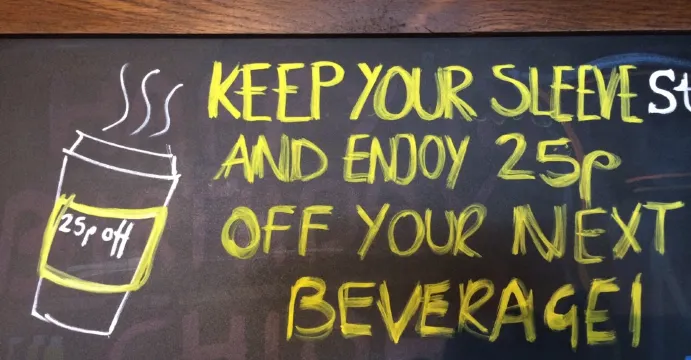 KEEP YOUR SLEEVE
AND ENJOY 25p
OFF YOUR NEXT
BEVERAGE!
25p off